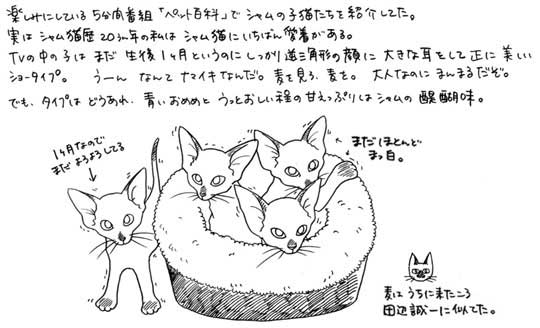 楽しみにしている 5分間番組「ペット百科」で シャムの子猫たちを紹介してた。
実は シャム猫歴 20ゥン年の私は シャム猫にいちばん愛着がある。
TVの中の子は まだ 生後1ヶ月というのに しっかり逆三角形の顔に 大きな耳をして 正に 美しい
ショータイプ。 うーん なんて ナマイキなんだ。麦を見ろ、麦を。 大人なのに まんまるだぞ。
でも、タイプは どうあれ、青いおめめと うっとおしい程の 甘えっぷりは シャムの 醍醐味。
1ヶ月なので
まだ ようようしてる
まだほとんど
まっ白。
麦は うちに来たころ
田辺誠一に似てた。